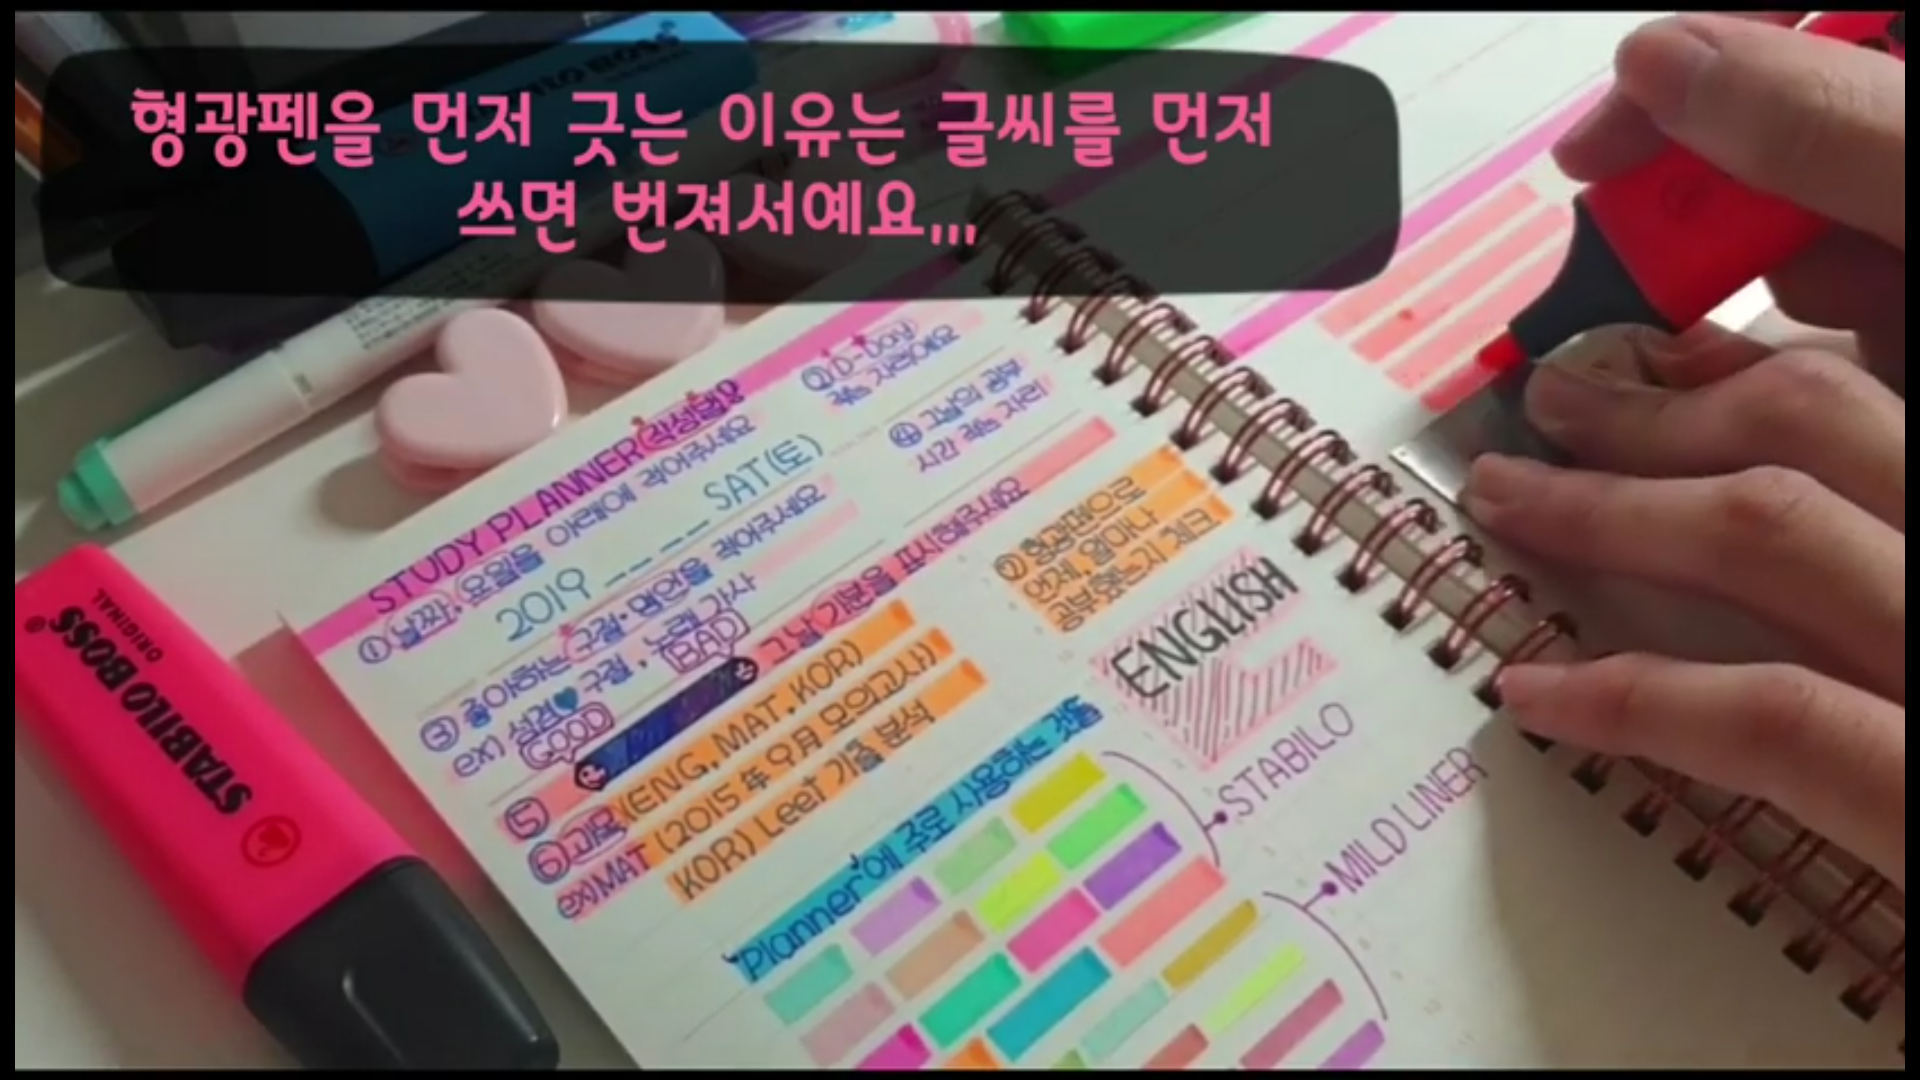 형광펜을 먼저 긋는 이유는 글씨를 먼저
쓰면 번져서예요...
STABILO BOSS
STUDY PLANNER(작성법)
① 날짜, 요일을 아래에 적어주세요
2019 _ _ _ _ SAT(토)
② D-Day
적는 자리예요
③ 좋아하는 구절·명언을 적어주세요
ex) 성경♥구절, 노래가사
④ 그날의 공부
시간 적는 자리
GOOD
BAD
⑤ 그날 기분을 표시해주세요
⑥ 과목(ENG, MAT, KOR)
ex)MAT (2015年 9月 모의고사)
KOR) Leet 기출 분석
⑦ 형광펜으로
언제, 얼마나
공부했는지 체크
ENGLISH
Planner에 주로 사용하는 것들
STABILO
MILD LINER
STABILO BOSS
ORIGINAL